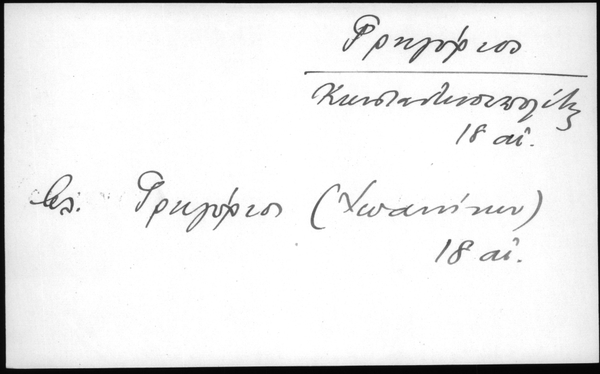 Γρηγόριος
Κωνσταντινουπολίτης
18 αἰ.
βλ. Γρηγόριος (
18 αἰ.